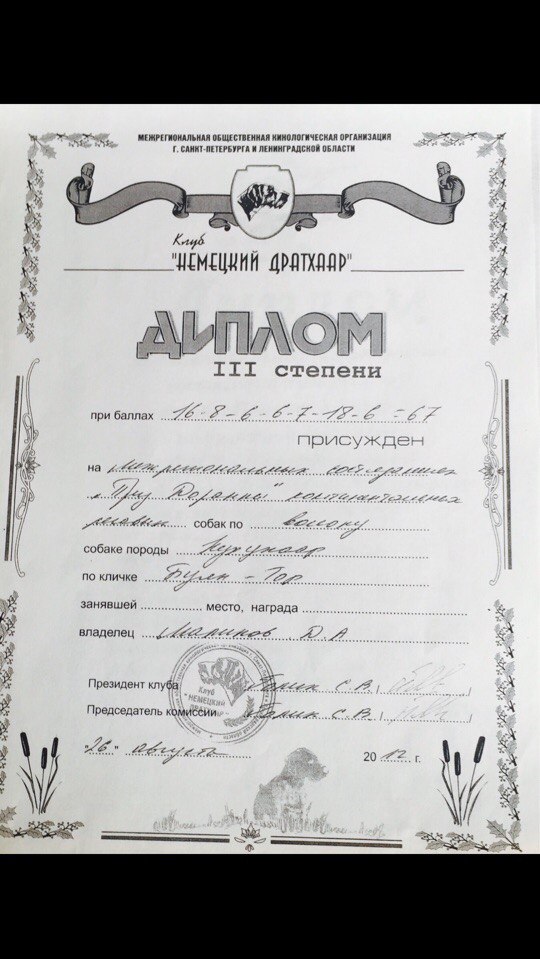 МЕЖРЕГИОНАЛЬНАЯ ОБЩЕСТВЕННАЯ КИНОЛОГИЧЕСКАЯ ОРГАНИЗАЦИЯ
Г. САНКТ-ПЕТЕРБУРГА И ЛЕНИНГРАДСКОЙ ОБЛАСТИ
Клуб
"НЕМЕЦКИЙ ДРАТХААР"
ДИПЛОМ
III степени
при баллах 16-8-6-6-7-18-6=67
присужден
на межрегиональных состязаниях
континентальных
легавых собак по
собаке породы Курцхаар
по кличке
занявшей место, награда
владелец Маликов Д.А
Президент клуба С.В.
Председатель комиссии С.В.
Клуб
"НЕМЕЦКИЙ
ДРАТХААР"
"26" августа 2012 г.